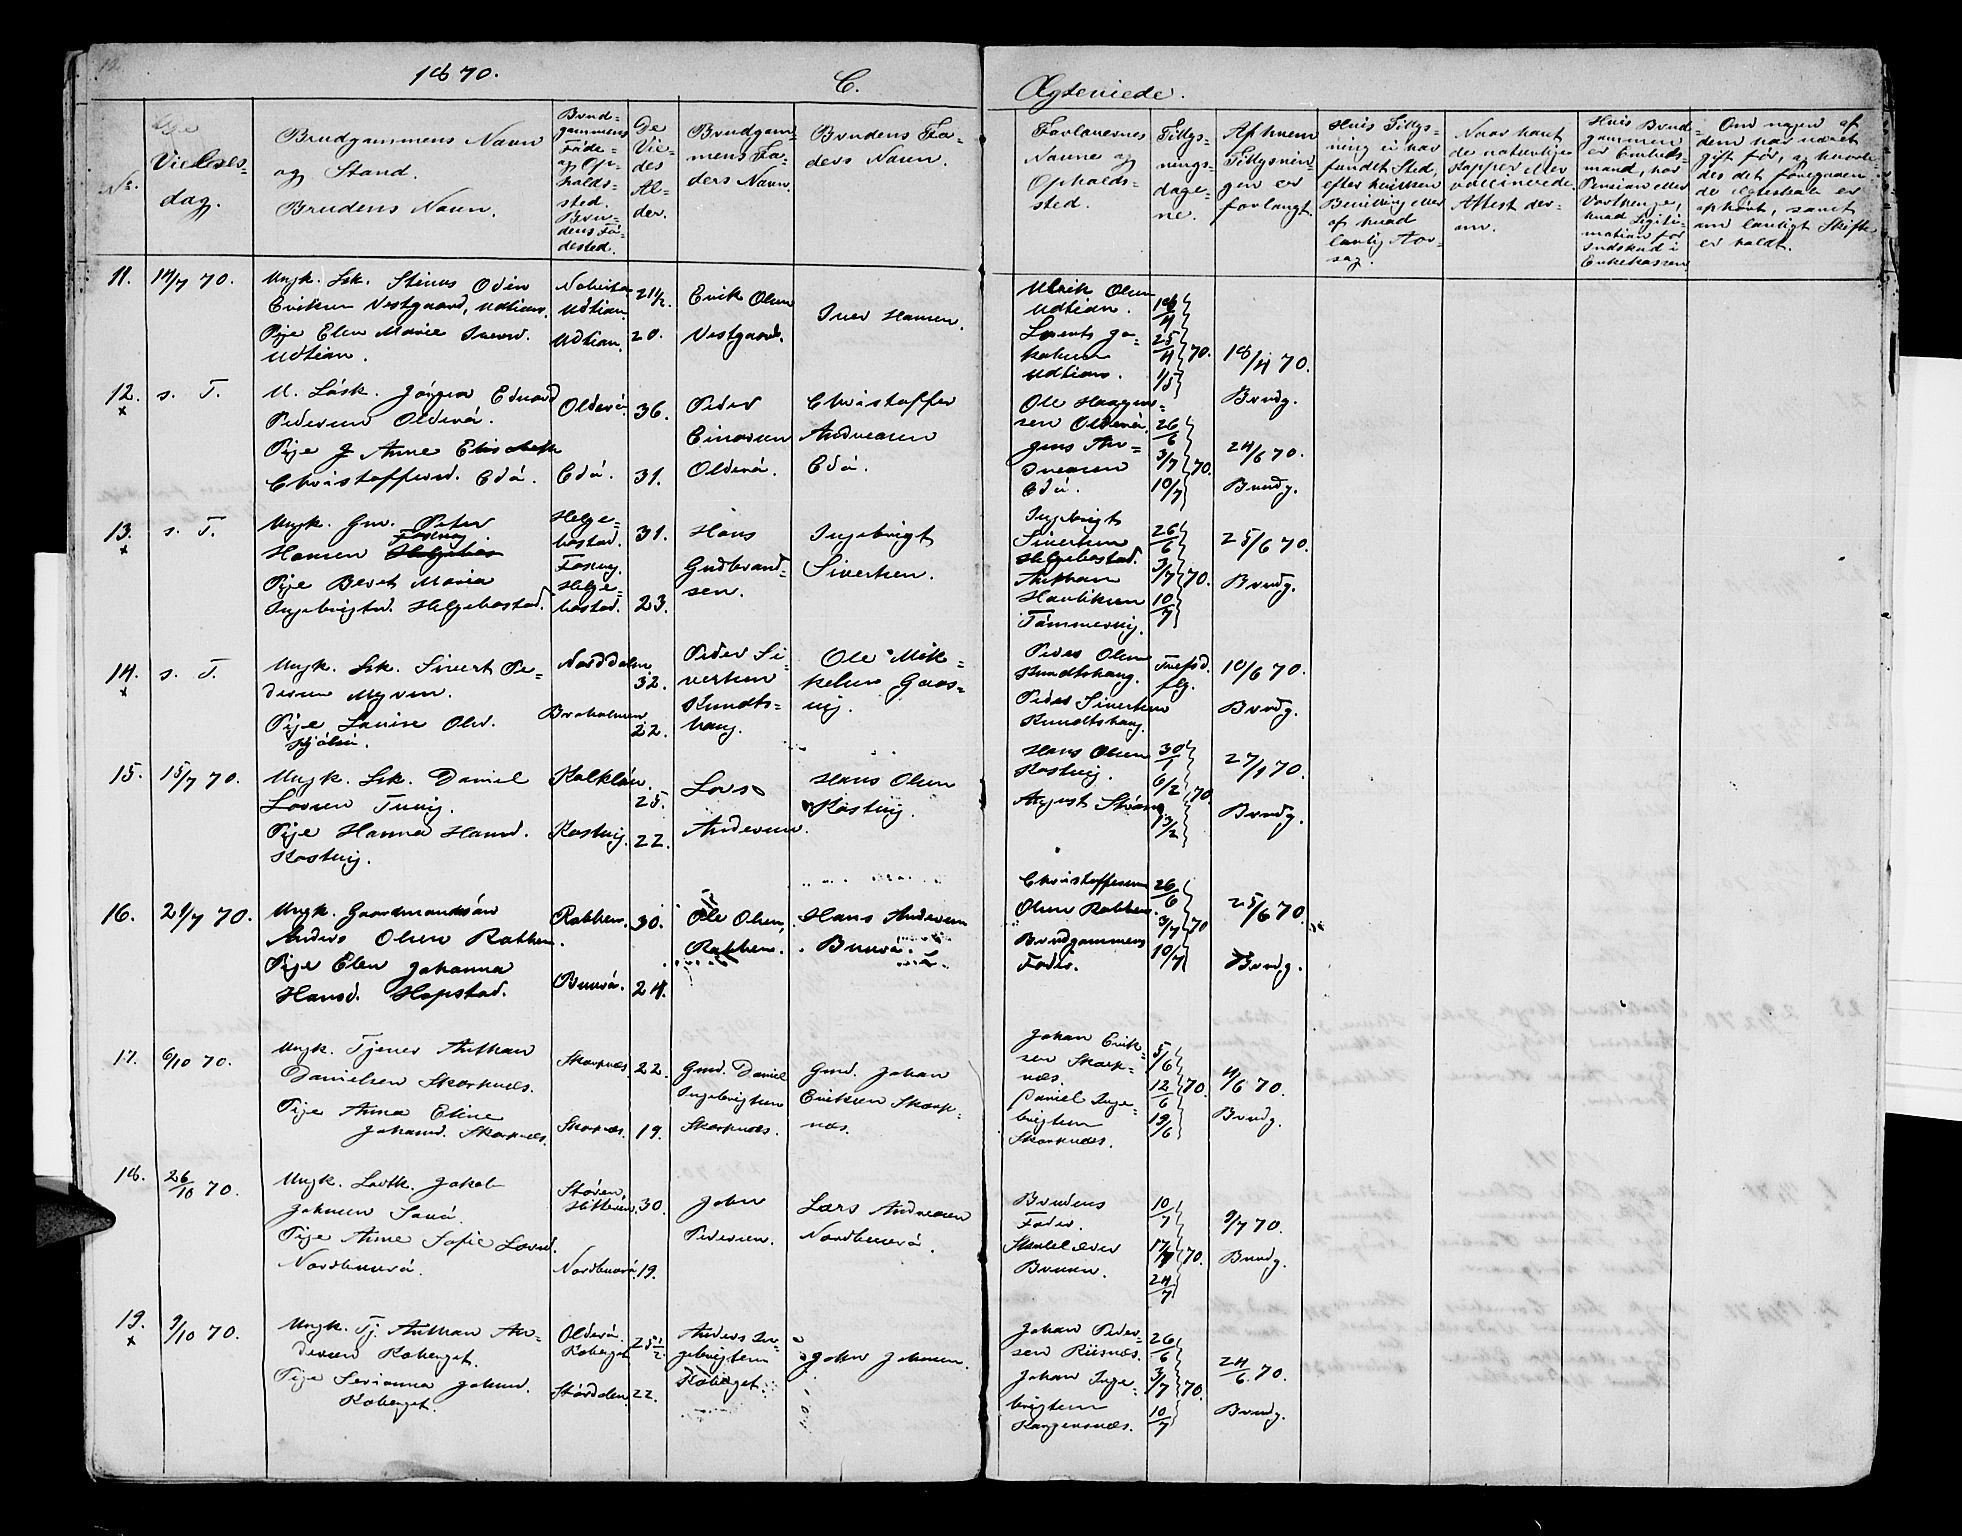 1870.
C.
Ægteviede.
No.
Vielses-
dag.
Brudgommens Navn
og Stand.
Brudens Navn.
Brud-
gommens
Føde-
og Op-
holds-
sted.
Bru-
dens Fø-
dested.
De
Vie-
des
Al-
der.
Brudgom-
mens Fa-
ders Navn.
Brudens Fa-
ders Navn.
Forlovernes
Navne og
Opholds-
sted.
Tillys-
nings-
dage-
ne.
Af hvem
Tillysnin-
gen er
forlangt.
Hvis Tillys-
ning ei har
fundet Sted,
efter hvilken
Bevilling eller
af hvad
lovlig Aar-
sag.
Naar havt
de naturlige
Kopper eller
vaccinerede.
Attest der-
om.
Hvis Brud-
gommen
er Embeds-
mand, har
Pension eller
Vartpenge,
hvad Legiti-
mation for
Indskud i
Enkekassen
Om nogen af
dem har været
gift før, og hvorle-
des det foregaaen-
de Ægteskab er
ophørt, samt
om lovligt Skifte
er holdt.
11. 14/7 70.
Ungk. Lsk. Stinus Odin
Eriksen Vestgaard, Udtian.
Pige Elen Marie Iversd.
Udtian.
Udtian.
Udtian.
21½
20.
Erik Olsen
Vestgaard.
Iver Hansen.
Ulrik Olsen
Udtian.
Lorents Jo-
hansen
Udtian.
18/4
25/4 70.
1/5
18/4 70.
Brudg.
12. x s. T.
U. Løsk. Jørgen Edvard
Pedersen Olderø.
Pige J Anne Elisabeth
Christoffersd. Edø.
Olderø.
Edø.
36.
31.
Peder
Einersen
Olderø.
Christoffer
Andreasen
Edø.
Ole Haagen-
sen Olderø.
Jens An-
dreasen
Edø.
26/6
3/7 70.
10/7
24/6 70.
Brudg.
13. x s. T.
Ungk. Gm. Peter
Hansen Fosvog.
Pige Beret Maria
Ingebrigtsd. Helgebostad.
Helge-
bostad.
Fosvog.
Helge-
bostad.
31.
23.
Hans
Gudbrand-
sen.
Ingebrigt
Sivertsen.
Ingebrigt
Sivertsen
Helgebostad.
Anthon
Hartviksen
Tømmervig.
26/6
3/7 70.
10/7
25/6 70.
Brudg.
14. x s. T.
Ungk. Lsk. Sivert Pe-
dersen Myren.
Pige Lovise Olsd.
Norddalen
Broholmen
32.
22.
Peder Si-
vertsen
Kundts-
haug.
Ole Mik-
kelsen Gaas-
vig.
Peder Olsen
Kundtshaug.
Peder Sivertsen
Kundtshaug.
Trefold.
flg.
10/6 70.
Brudg.
15. 15/7 70.
Ungk. Lsk. Daniel
Larsen Tuvig.
Pige Hanna Hansd.
Kostvig.
Kalkløn.
Kostvig.
25.
22.
Lars
Andersen.
Hans Olsen
Kostvig.
Hans Olsen
Kostvig.
August Strøm
30/1
6/2 70.
13/2
27/1 70.
Brudg.
16. 21/7 70.
Ungk. Gaardmandssøn
Anders Olsen Rabben.
Pige Elen Johanna
Hansd. Hopstad.
Rabben.
Burøø.
30.
24.
Ole Olsen,
Rabben.
Hans Andersen
Christoffersen
Olsen Rabben.
Brudgommens
Fader.
26/6
3/7 70
10/7
25/6 70.
Brudg.
17. 6/10 70.
Ungk. Tjener Anthon
Danielsen Skarpnæs.
Pige Anna Eline
Johansd. Skarpnæs.
Skarpnæs.
Skarpnæs.
22.
19.
Gmd. Daniel
Ingebrigtsen
Skarpnæs.
Gmd. Johan
Eriksen Skarp-
næs.
Johan Erik-
sen Skarp-
næs.
Daniel Inge-
brigtsen
Skarpnæs.
5/6
12/6 70.
19/6
4/6 70.
Brudg.
18. 26/10 70.
Ungk. Løstk. Jakob
Johnsen
Pige Anne Sofie Larsd.
Støren,
Hitteren.
30.
19.
John
Pedersen.
Lars Andreasen
Brudens
Fader.
Skolelærer
Bruun.
10/7
17/7 70.
24/7
9/7 70.
Brudg.
19. x 9/10 70.
Ungk. Tj. Anthon An-
dersen Roberget.
Pige Serianna Johnsd.
Roberget.
Olderø.
Roberget
Størdalen
25½
22.
Anders In-
gebrigtsen
Roberget.
John Johnsen.
Johan Peder-
sen Riisnæs.
Johan Inge-
brigtsen
Kongensnæs.
26/6
3/7 70.
10/7
24/6 70.
Brudg.